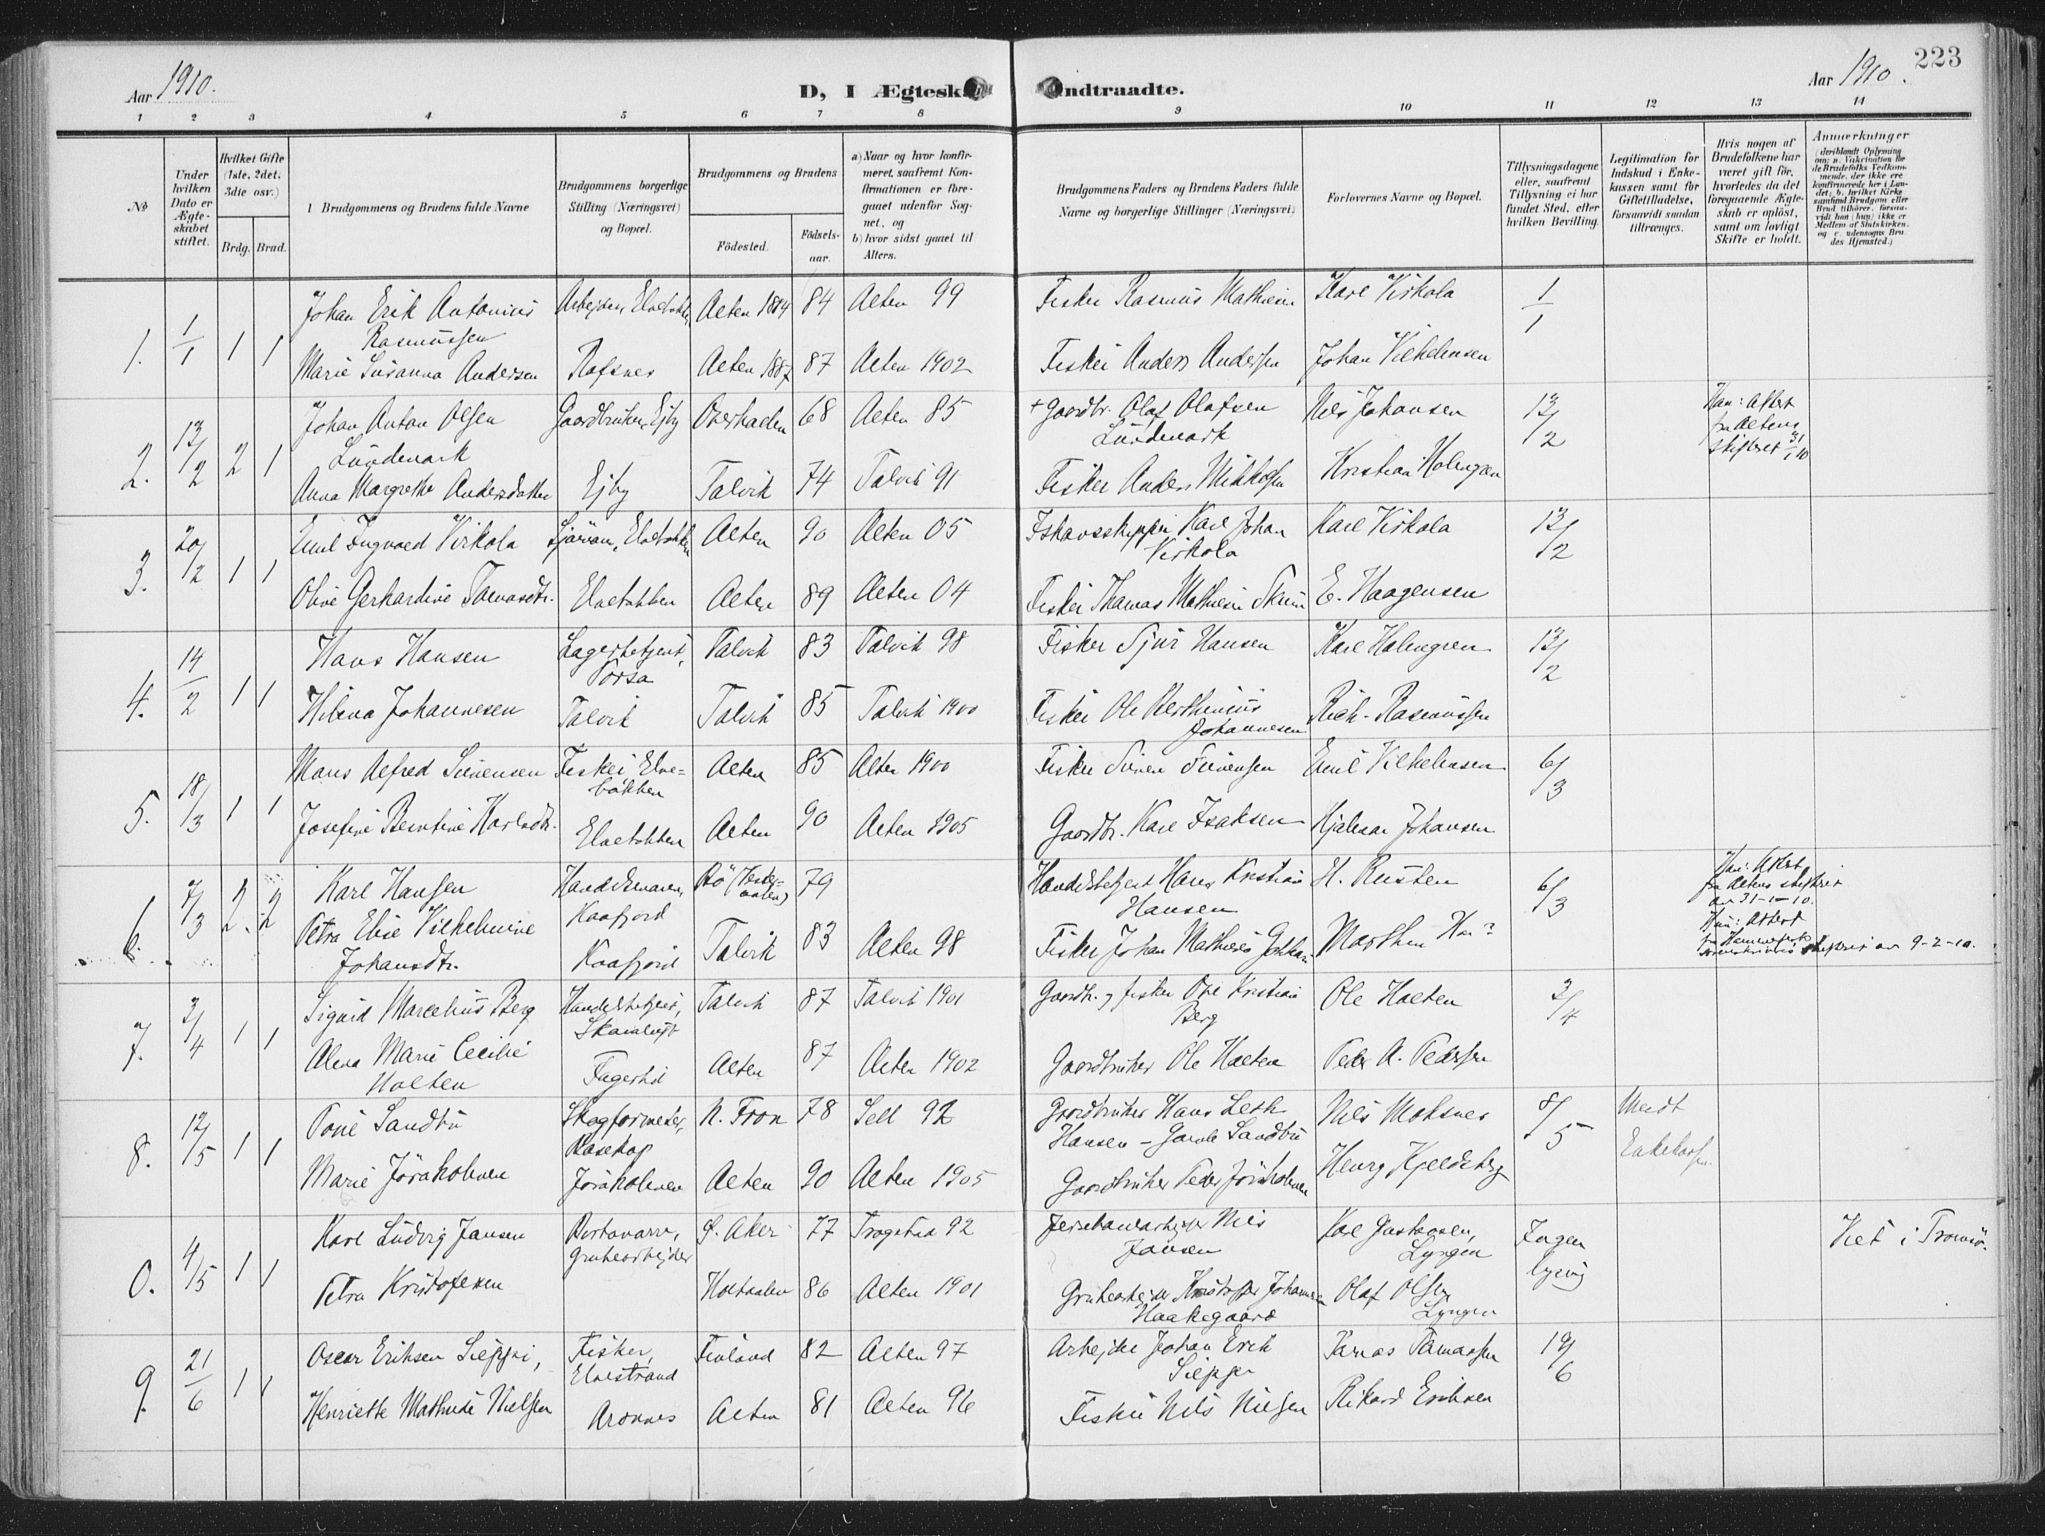 Aar 1910.
D, I Ægtesk
ndtraadte.
Aar 1910.
223
1 2 3 4 5 6 7 8 9 10 11 12 13 14
No
Under hvilken Dato er Ægteskabet stiftet.
Hvilket Gifte (1ste, 2det, 3die osv.)
Brdg. Brud.
Brudgommens og Brudens fulde Navne
Brudgommens borgerlige Stilling (Næringsvei) og Bopæl.
Brudgommens og Brudens
Födested.
Födsels-aar.
a) Naar og hvor konfirmeret, saafremt Konfirmationen er foregaaet udenfor Sognet, og
b) hvor sidst gaaet til Alters.
Brudgommens Faders og Brudens Faders fulde Navne og borgerlige Stillinger (Næringsvei)
Forlovernes Navne og Bopæl.
Tillysningsdagene eller, saafremt Tillysning ei har fundet Sted, efter hvilken Bevilling.
Legitimation for Indskud i Enkekassen samt for Giftetilladelse, forsaavidt saadan tiltrænges.
Hvis nogen af Brudefolkene har været gift för, hvorledes da det foregaaende Ægteskab er oplöst, samt om lovligt Skifte er holdt.
Anmærkninger
1. 1/1 1 1
Johan Erik Antonius Rasmussen Arbejder, Elvebakken Alten 1884 84 Alten 99 Fisker Rasmus Mathisen Karl Virkola 1/1
Marie Susanna Andersen Rafsnes Alten 1887 87 Alten 1902 Fisker Anders Andersen Johan Vilhelmsen
2. 13/2 2 1
Johan Anton Olsen Lundemark Gaardbruker, Ejby Overhalden 68 Alten 85 + Gaardbr. Olaf Olafsen Lundemark Nils Johansen 13/2 Han: Attest fra Altens skifteret 31/1 10
Anna Margrethe Andersdatter Ejby Talvik 74 Talvik 91 Fisker Anders Mikkelsen Kristian Holmgren
3. 20/2 1 1
Emil Ingvald Virkola Sjöman, Elvebakken Alten 90 Alten 05 Ishavsskipper Karl Johan Virkola Karl Virkola 13/2
Olive Gerhardine Tomasdtr. Elvebakken Alten 89 Alten 04 Fisker Thomas Mathisen Skum E. Haagensen
4. 14/2 1 1
Hans Hansen Lagerbetjent, Porsa Talvik 83 Talvik 98 Fisker Sjur Hansen Karl Holmgren 13/2
Johannesen Talvik Talvik 85 Talvik 1900 Fisker Ole Johannesen Rich. Rasmussen
5. 18/3 1 1
Hans Alfred Simensen Fisker, Elvebakken Alten 85 Alten 1900 Fisker Simen Simensen Emil Vilhelmsen 6/3
Josefine Berntine Karlsdtr. Elvebakken Alten 90 Alten 1905 Gaardbr. Karl Isaksen Hjalmar Johansen
6. 7/3 2. 2
Karl Hansen Kaafjord Bö (Vesteraalen) 79 Handelsbetjent Hans Kristian Hansen H. Rusten 6/3 Han: Attest fra Altens skifteret av 31-1-10.
Petra Elise Vilhelmine Johansdtr. Kaafjord Talvik 83 Alten 98 Fisker Johan Mathisen Marthin Hun: Attest fra Hammerfests skifteret av 9-2-10.
7. 3/4 1 1
Sigurd Marcelius Berg Handelsbetjent, Talvik 87 Talvik 1901 Gaardbr. og fisker Ole Kristian Berg Ole Holten 3/4
Alma Marie Cecilie Holten Fagerli Alten 87 Alten 1902 Gaardbruker Ole Holten Peder A. Pedersen
8. 12/5 1 1
Paul Sandbu Skogformester, Bosekop N. Fron 78 Sell 92 Gaardbruker Hans Hansen - Gamle Sandbu Nils Moksnes 8/5 Meldt Enkekassen.
Marie Jöraholmen Jöraholmen Alten 90 Alten 1905 Gaardbruker Peder Jöraholmen Henry Kjeldsberg
0. 4/5 1 1
Karl Ludvig Jansen Bortavarre, Grubearbejder Ö. Aker 77 Trogstad 92 Jernbanearbejder Nils Jansen Karl Gustavsen, Lyngen Ingen lysning Viet i Tromsö.
Petra Kristofersen Holtaalen 86 Alten 1901 Grubearbejder Kristoffer Johannesen Haakegaard Olaf Olsen Lyngen
9. 21/6 1 1
Oscar Eriksen Sieppi, Fisker, Elvestrand Finland 82 Alten 97 Arbejder Johan Erik Sieppi Tomassen 19/6
Henriette Mathilde Nielsen Aronnes Alten 81 Alten 96 Fisker Nils Nilsen Rikard Eriksen